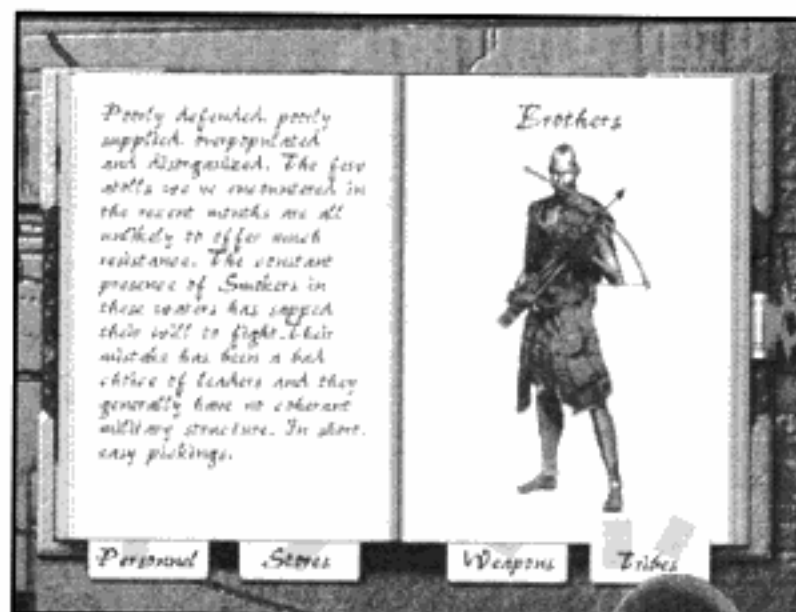 Poorly defended, poorly
supplied, overpopulated
and disorganized. The few
atolls we've encountered in
the recent months are all
unlikely to offer much
resistance. The constant
presence of Smokers in
these waters has sapped
their will to fight. Their
mistake has been a bad
choice of leaders and they
generally have no coherant
military structure. In short,
easy pickings.
Erothers
Personnel
Stores
Weapons
Tribes